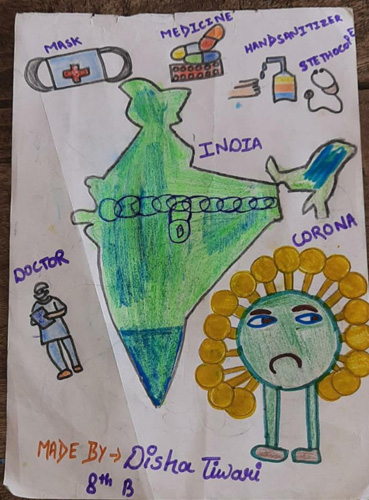 MASK
MEDICINE
HANDSANITIZER
STETHOCOPE
INDIA
CORONA
DOCTOR
MADE BY → Disha Tiwari
8th B